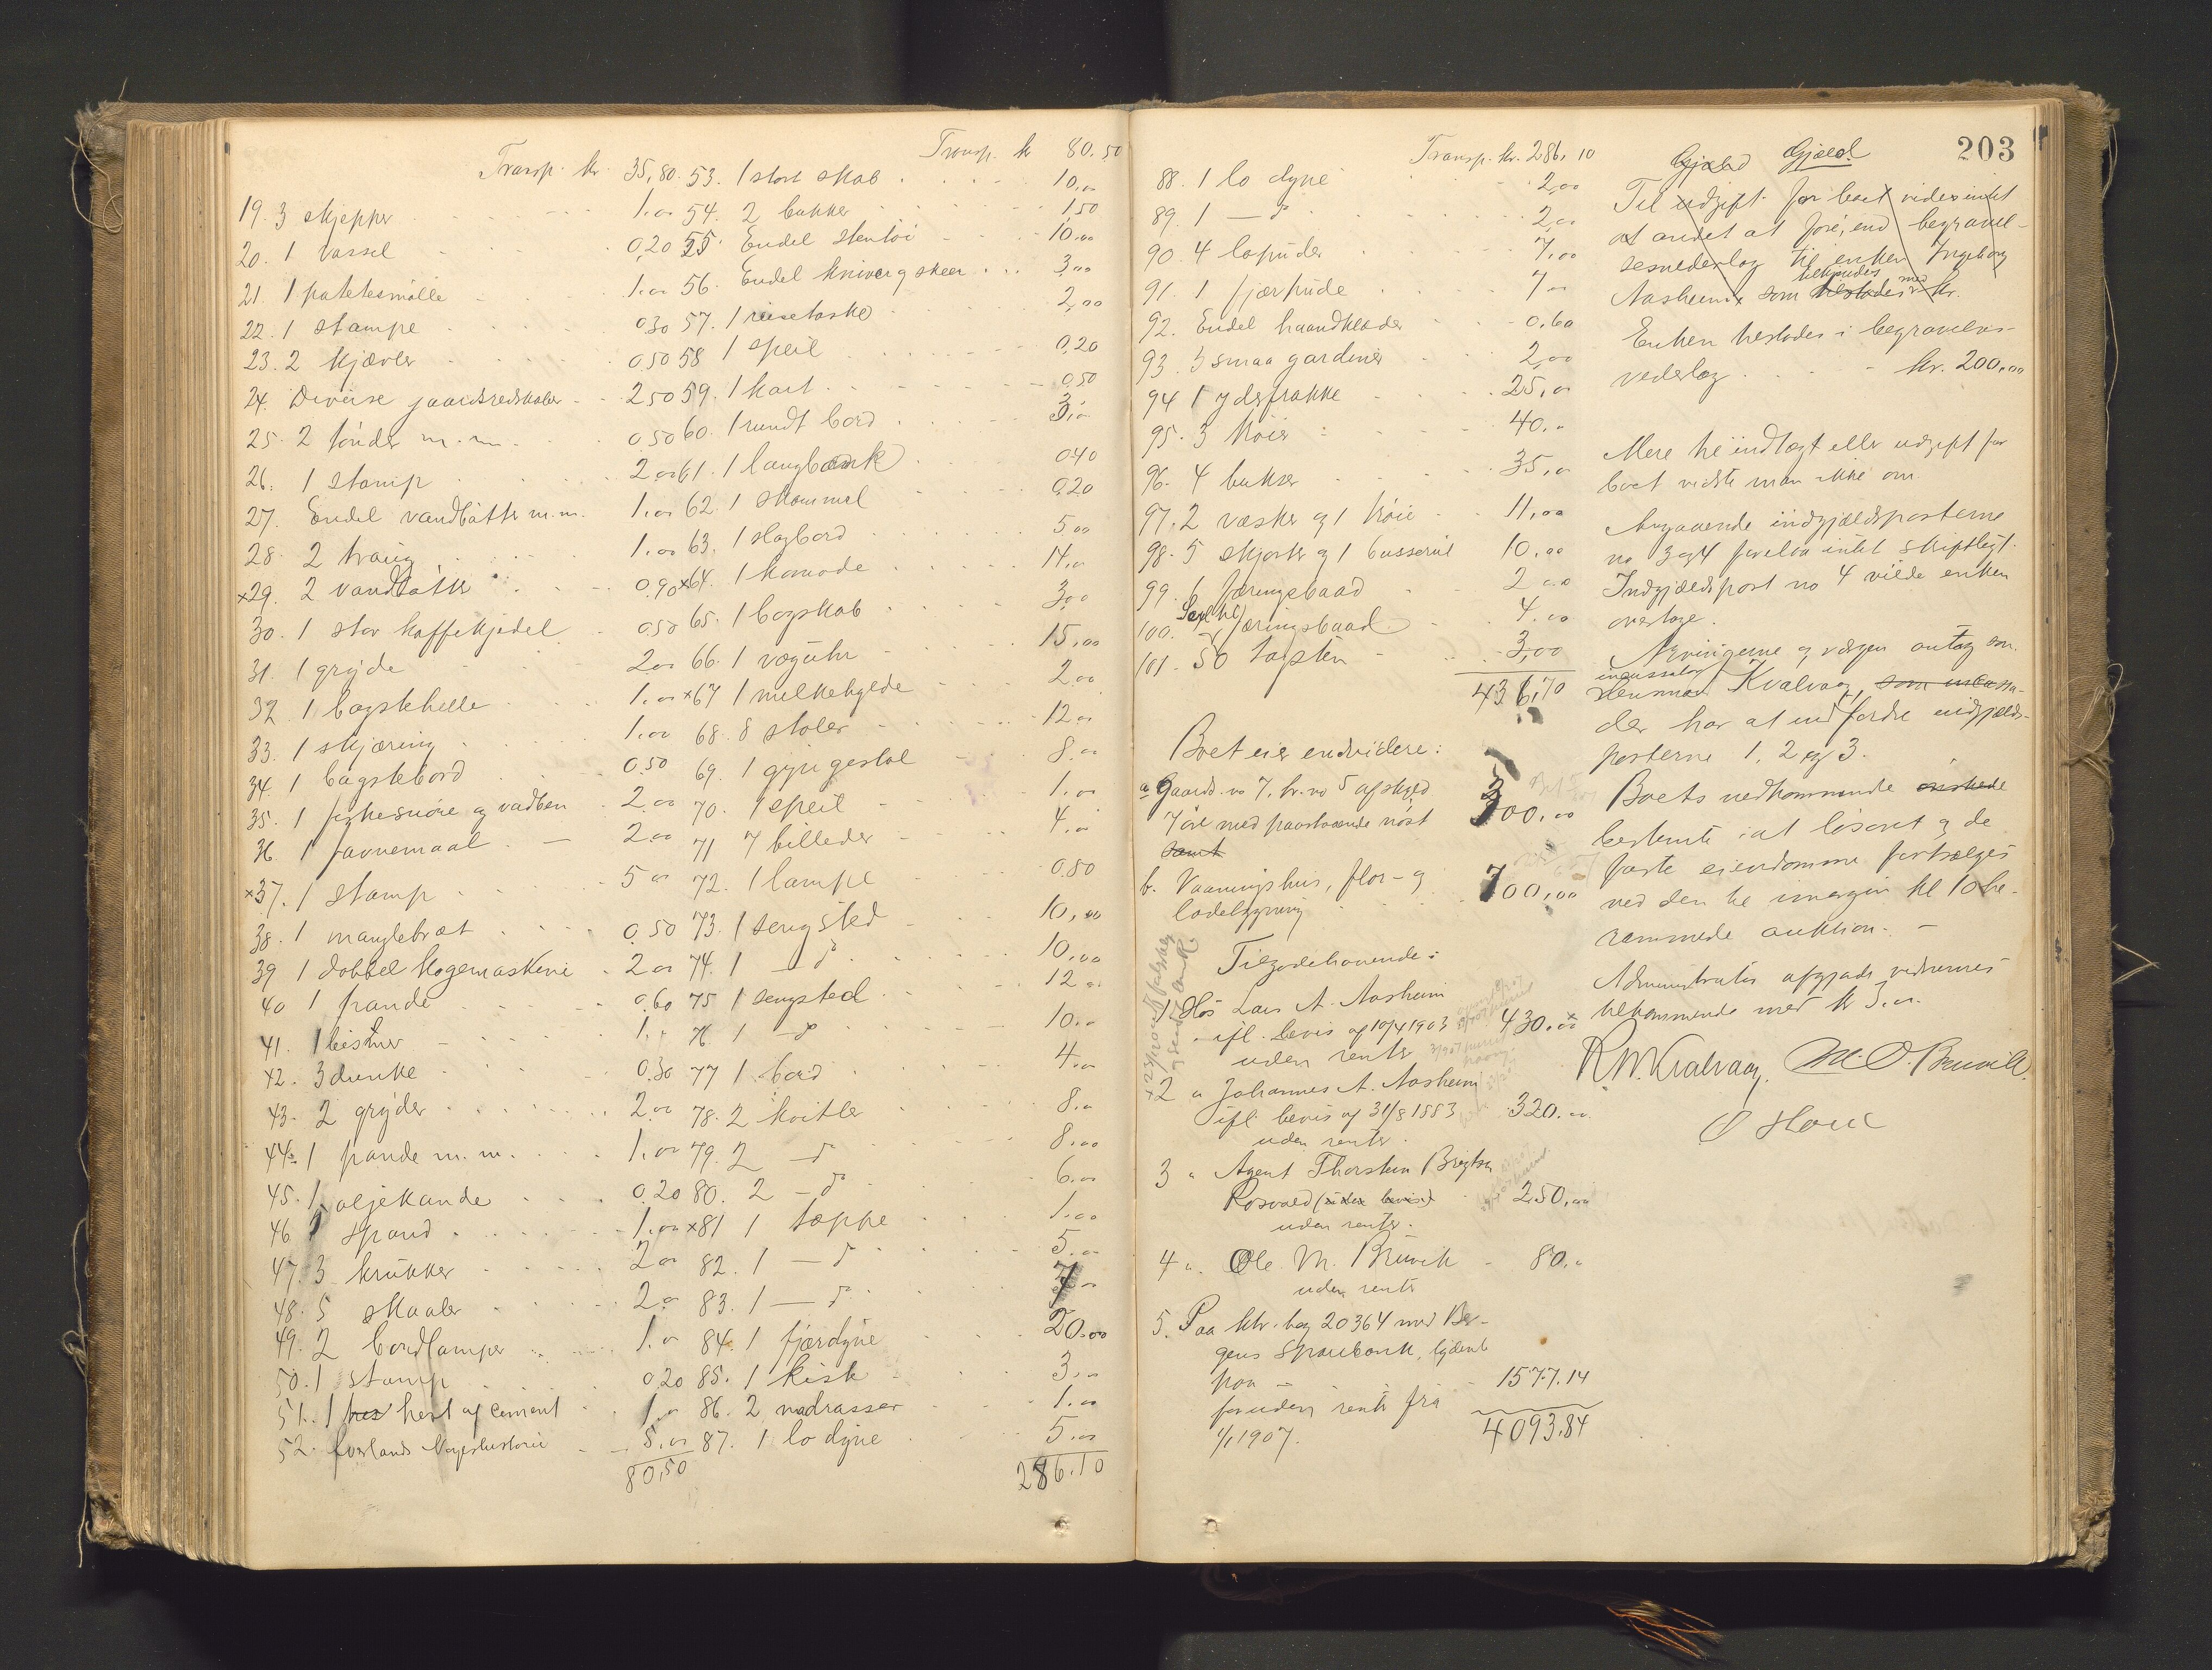 Transp. kr. 35,80.
19. 3 skjepper 1.00
20. 1 vassel 0,20
21. 1 potetesmølle 1.00
22. 1 stampe 0.30
23. 2 kjævler 0.50
24. Diverse gaardsredskaber 2.50
25. 2 tønder m.m. 0.50
26. 1 stamp 2.00
27. Endel vandbøtter m.m. 1.00
28. 2 traug 1.00
x29. 2 vandbøtter 0.90
30. 1 stor kaffekjedel 0.50
31. 1 gryde 2.00
32. 1 bagstehelle 1.00
33. 1 skjæring 1.00
34. 1 bagstebord 0.50
35. 1 fiskesnøre og vadben 2.00
36. 1 favnemaal 2.00
x37. 1 stamp 5.00
38. 1 manglebræt 0.50
39 1 dobbel kogemaskine 2.00
40 1 pande 0.60
41. 1 bismer 1.
42. 3 dunke 0.30
43. 2 gryder 2.00
44. 1 pande m.m. 1.00
45. 1 oljekande 0.20
46 1 spand 1.00
47. 3 krukker 2.00
48. 5 skaaler 2.00
49. 2 bordlamper 1.00
50. 1 stamp 0.20
51. 1 hest af cement 1.00
52. Norgeshistorie 5.00
80.50
Transp. kr 80.50
53. 1 stort skab 10,00
54. 2 bukker 1,50
55. Endel stentøi 10.00
56. Endel kniver og skeer 3,00
57. 1 reisetaske 2,00
58 1 speil 0,20
59. 1 kart 0.50
60. 1 rundt bord 3.00
61. 1 langbænk 0.40
62. 1 skammel 0.20
63. 1 slagbord 5.00
x64. 1 komode 14.00
65. 1 bogskab 3.00
66. 1 væguhr 15.00
x67 1 melkehylde 2.00
68. 8 stoler 12.00
69. 1 gyngestol 8.00
70. 1 speil 1.00
71 7 billeder 4.00
72. 1 lampe 0.80
73. 1 sengsted 10,00
74. 1 — d° 10.00
75 1 sengsted 12.00
76. 1 — d° 10.00
77 1 bord 4.00
78. 2 kvitler 8.00
79. 2 — d° 8.00
80. 2 — d° 6.00
x81 1 tæppe 1.00
82. 1 — d° 5.00
83. 1 — d° 7.00
84. 1 fjærdyne 20.00
85. 1 kiste 3.00
86. 2 madrasser 1.00
87. 1 lo dyne 5.00
286.10
Transp. kr. 286.10
88. 1 lo dyne 2,00
89. 1 — d° 2,00
90. 4 lopuder 7,00
91. 1 fjærpude 7 00
92. Endel haandklæder 0.60
93. 3 smaa gardiner 2,00
94 1 yderfrakke 25,00
95. 3 trøier 40.00
96. 4 bukser 35,00
97. 2 væsker og 1 trøie 11,00
98. 5 skjorter og 1 busserul 10.00
99. 6 færingsbaad 2.00
100. Seil til færingsbaad 4.00
101. 50 tagsten 3,00
436,70
Boet eier endvidere:
a Gaards no 7. br. no 5 afskyld
7 øre med paastaaende nøst 300,00
samt
b. Vaaningshus, flor- og
ladebygning 700,00
Tilgodehavende:
1. Hos Lars A. Aasheim
ifl. bevis af 10/4 1903 430.00
uden renter
x2 " Johannes A. Aasheim
ifl. bevis af 31/8 1883 320.00
uden renter.
3 " Agent Thorstein Brigtsen
Rosvold (uden bevis) 250,00
uden renter.
4 ". Ole M. Bruvik 80.00
uden rente
5. Paa ktr. bog 20364 med Ber-
gens Sparebank, lydende
paa 1577.14
foruden rente fra
1/1 1907. 4093.84
203
Gjæld Gjæld
Til udgift for boet vides intet
at andet at føre, end begravel-
sesnederlag til enken Ingeborg
Aasheim som tilstodes med kr.
Enken tilstodes i begravelses-
vederlag kr. 200,00
Mere til indtægt eller udgift for
boet vidste man ikke om.
Angaaende indgjældsposterne
no 3 og 4 forelaa intet skriftligt.
Indgjældspost no 4 vilde enken
overtage.
Arvingerne og værgen antog som
incassator
lensmand Kvalvaag, som
der har at indfordre indgjælds-
posterne 1, 2 og 3.
Boets vedkommende ønskede
bestemte at løsøret og de
faste eiendomme forsælges
ved den til imorgen kl 10 be-
rammede auktion. —
Administrator afgjorde vidnernes
tilkommende med kr 3.00.
R. M. Kvalvaag. M. O. Bruvik.